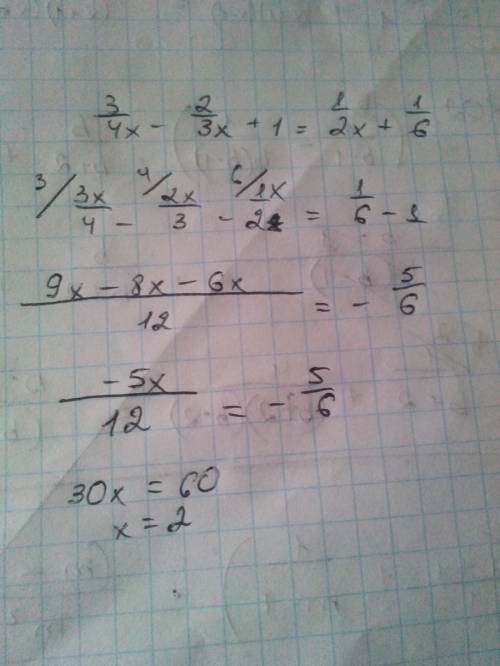 3/4x - 2/3x + 1 = 1/2x + 1/6
3/ 3x/4 - 4/ 2x/3 - 6/ 1x/2 = 1/6 - 1
9x - 8x - 6x / 12 = - 5/6
-5x / 12 = - 5/6
30x = 60
x = 2